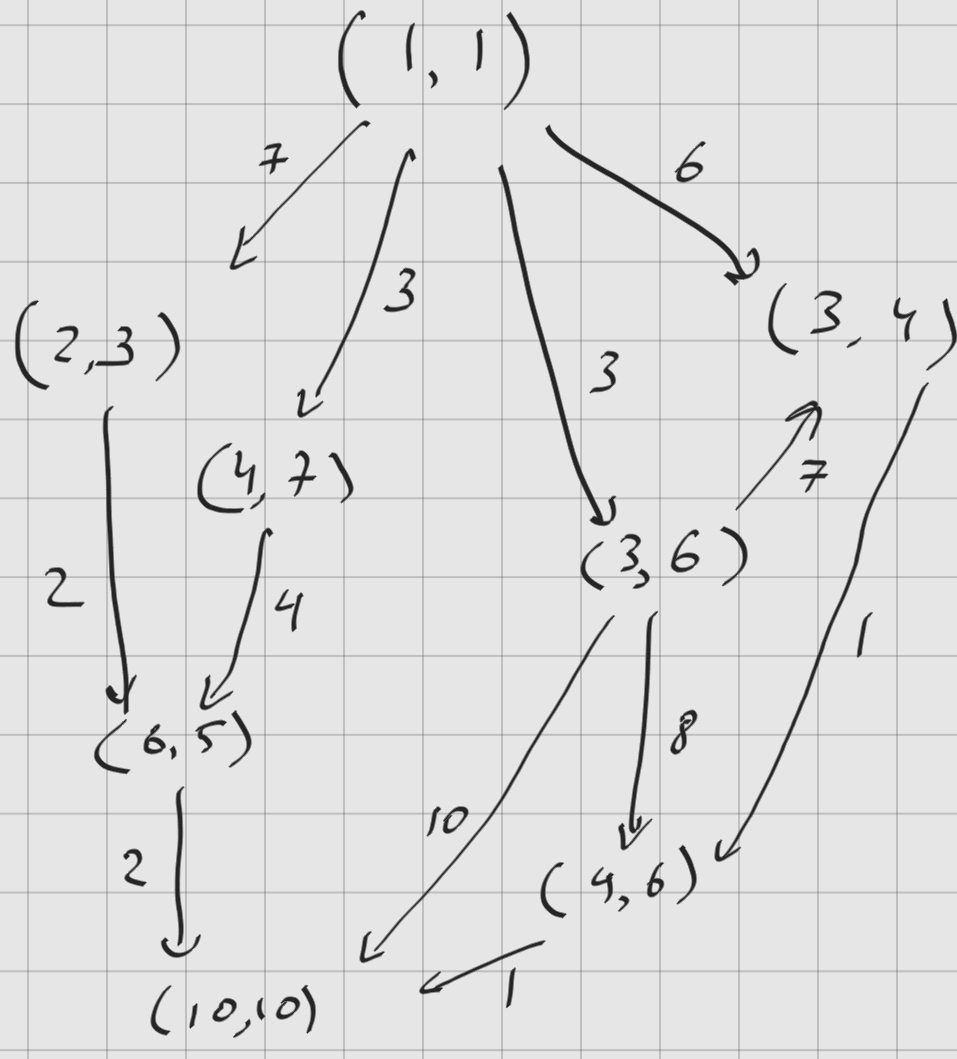 (1, 1)
7
6
3
3
(2,3)
(3, 4)
(4, 7)
7
(3, 6)
2
4
1
(6, 5)
8
10
2
(4, 6)
1
(10,10)